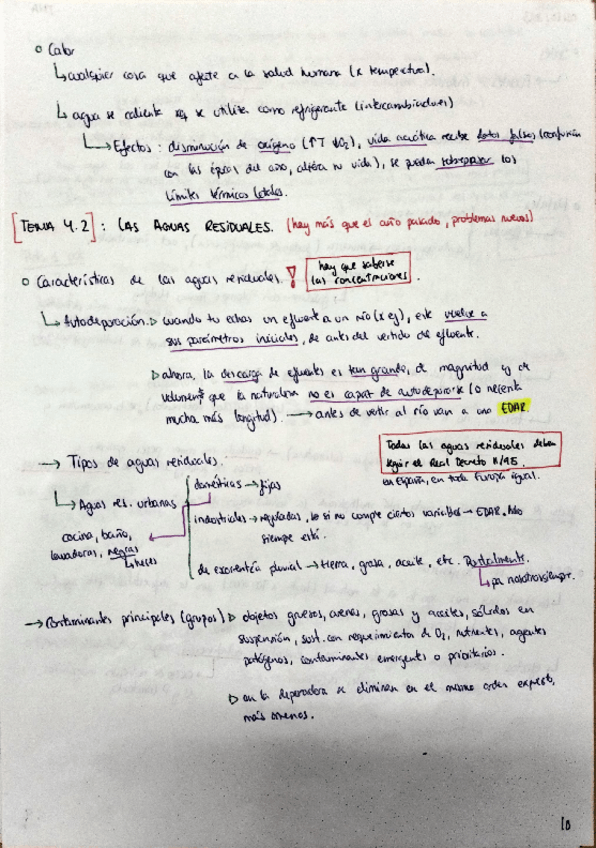 o Calor
↳ cualquier cosa que afecte a la salud humana (x temperatura).
↳ agua se calienta xq se utiliza como refrigerante (intercambiadores)
↳ Efectos: disminución de oxígeno (↑T ↓O2), vida acuática recibe datos falsos (confunden
con las épocas del año, altera su vida), se pueden sobrepasar los
límites térmicos letales.
[TEMA 4.2]: LAS AGUAS RESIDUALES. (hay más que el año pasado, problemas nuevos)
o Características de las aguas residuales. ! hay que saberse
las concentraciones.
↳ Autodepuración. ▷ cuando tu echas un efluente a un río (x ej), este vuelve a
sus parámetros iniciales, de antes del vertido del efluente.
▷ ahora, la descarga de efluentes es tan grande, de magnitud y de
volumen, que la naturaleza no es capaz de autodepurarse (o necesita
mucha más longitud). → antes de vertir al río van a una EDAR.
Todas las aguas residuales deben
seguir el Real Decreto 11/95.
en España, en toda Europa igual.
→ Tipos de aguas residuales.
↳ Aguas res. urbanas
domésticas → fijas
cocina, baño,
lavadoras, negras
↳ heces
industriales → reguladas, si no cumple ciertos variables → EDAR. No
siempre está.
de escorrentía pluvial → tierra, grasa, aceite, etc. Puntualmente.
↳ pa nosotros siempr.
→ Contaminantes principales (grupos) ▷ objetos gruesos, arenas, grasas y aceites, sólidos en
suspensión, sust. con requerimientos de O2, nutrientes, agentes
patógenos, contaminantes emergentes o prioritarios.
▷ en la depuradora se eliminan en el mismo orden expuesto,
más o menos.
10